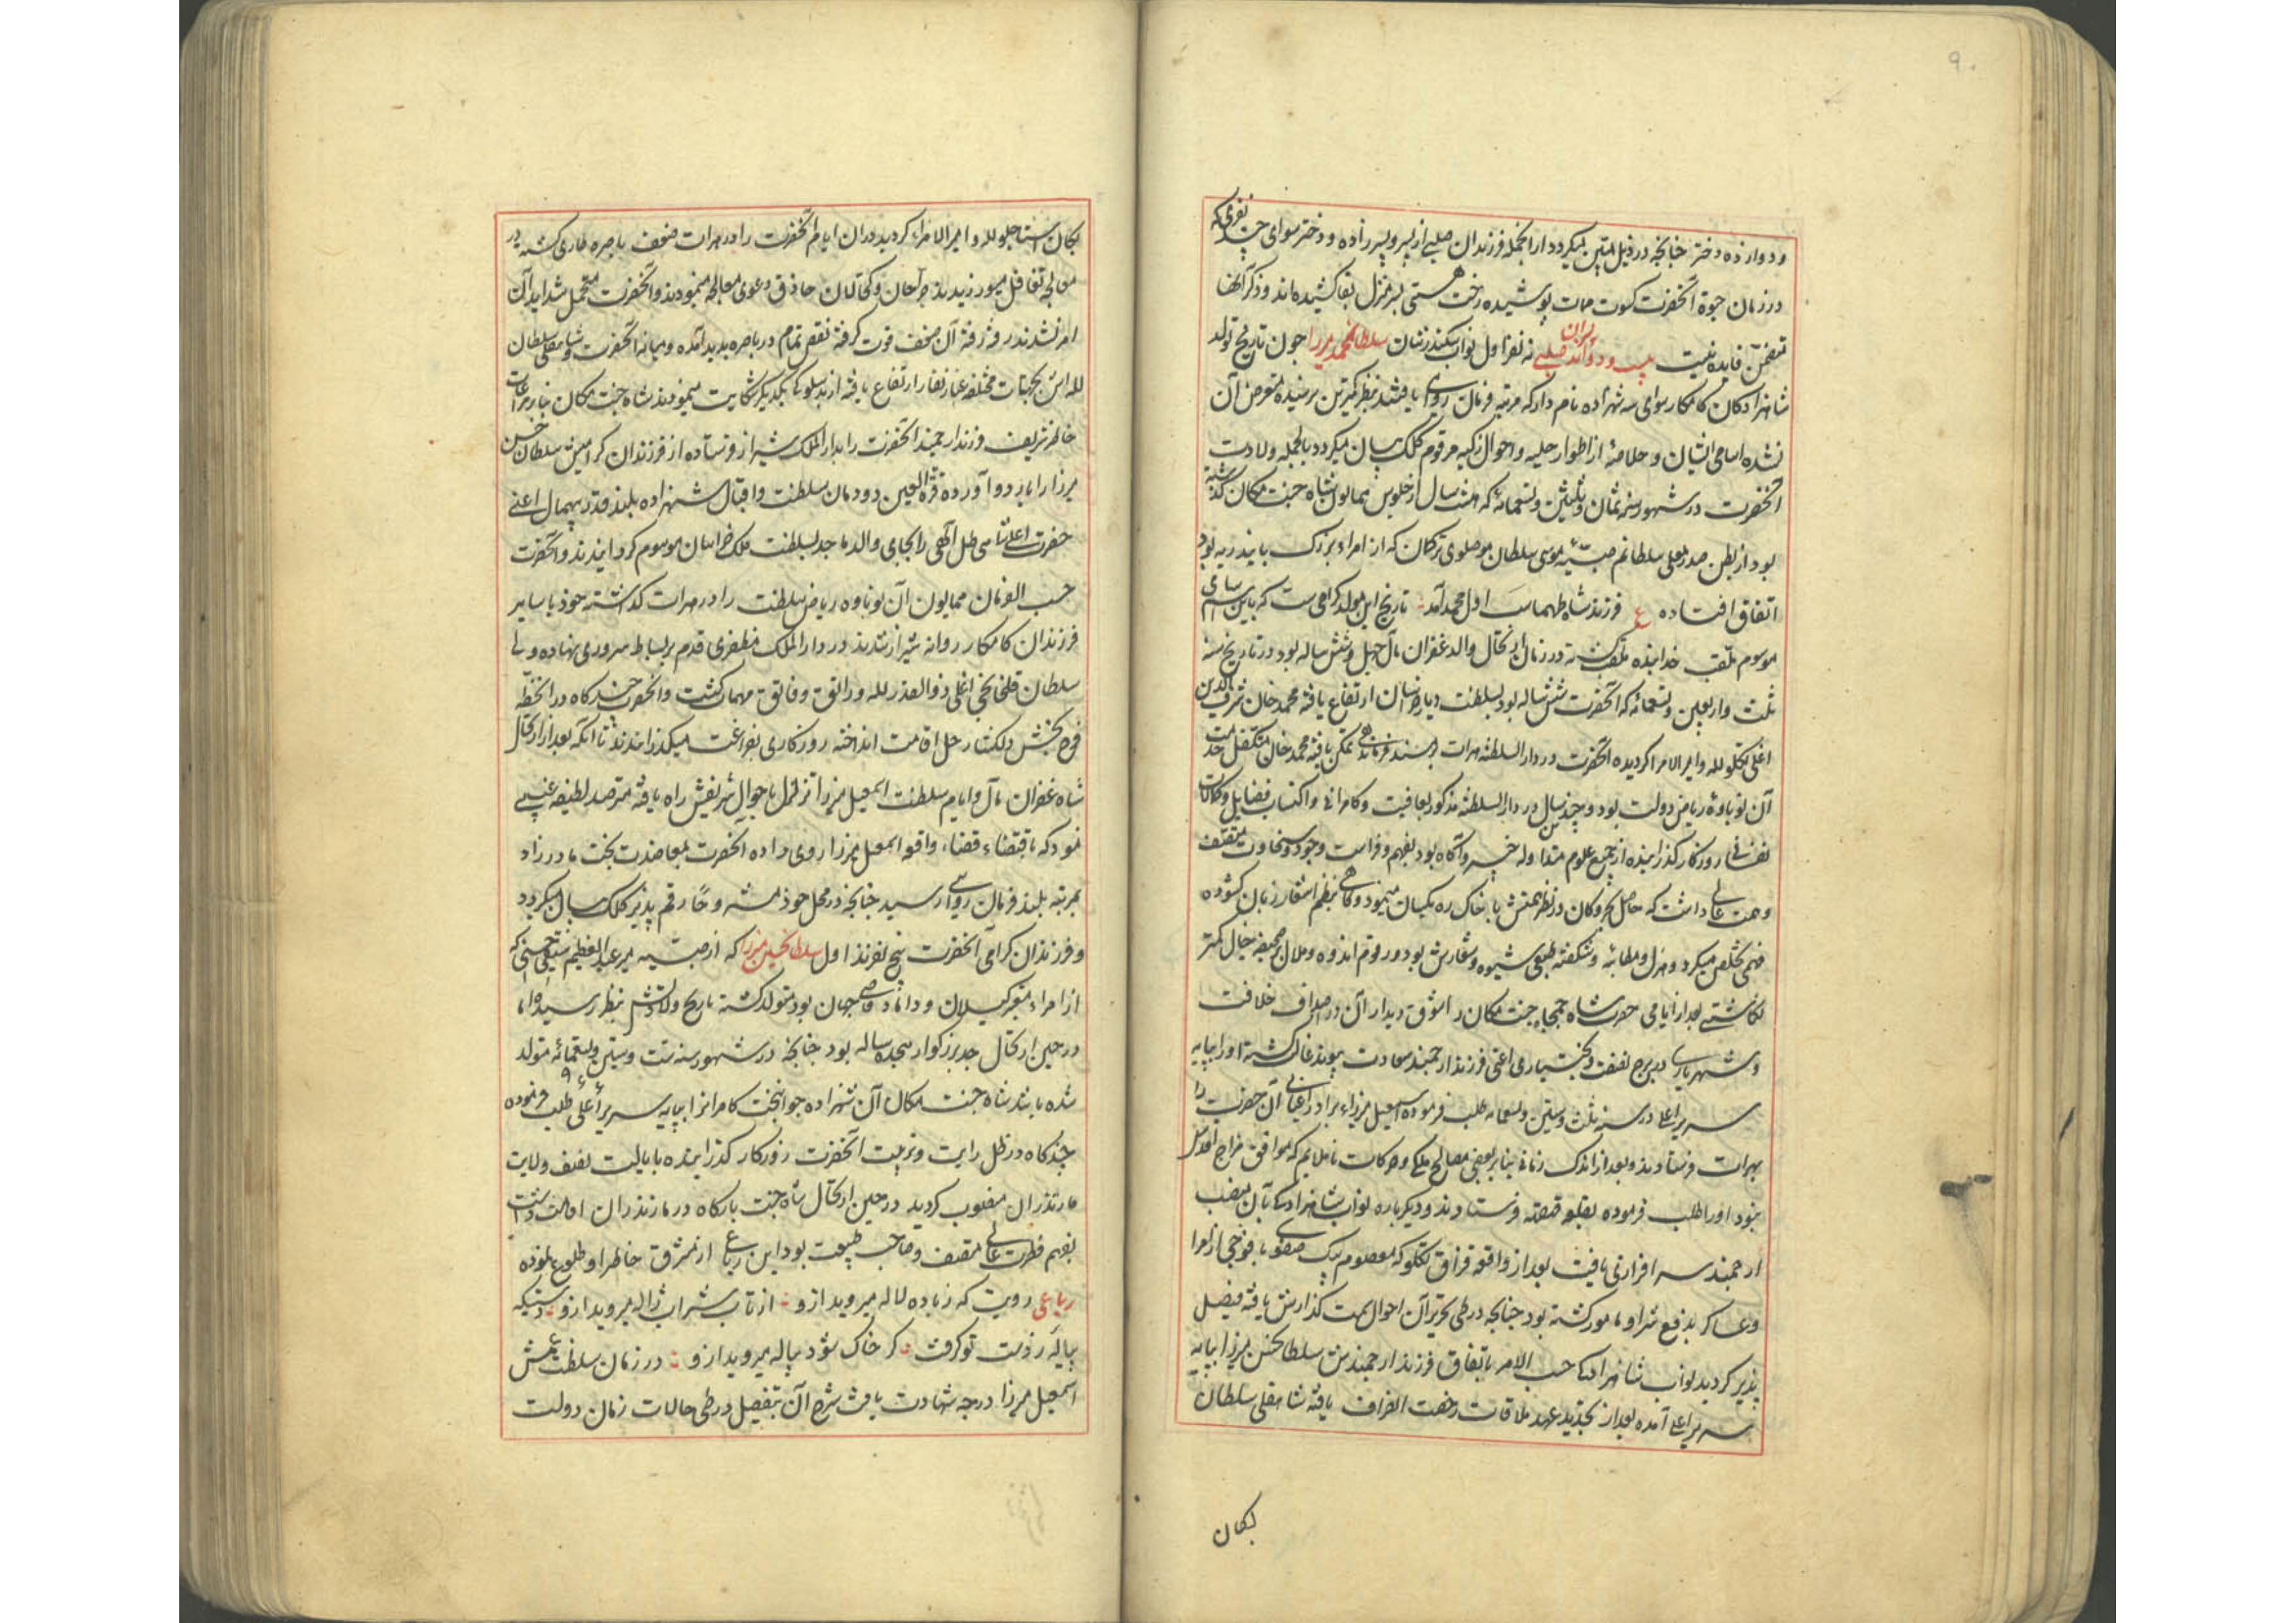 ۹۰
و دوازده دختر چنانچه در ذیل مبین میگردد از انجمله فرزندان صلبی از پسر و پسرزاده و دختر سوای چند نفری که
در زمان حیوة آنحضرت کسوت ممات پوشیده رخت هستی بسرمنزل بقا کشیده‌اند و ذکر آنها
متضمن فایده نیست پسران صلبی نه نفر اول نواب سکندرشان سلطانمحمد میرزا چون تاریخ تولد
شاهزادگان کامکار سوای سه شهزاده نامدار که مرتبه فرمان روای یافتند بنظر کمترین نرسیده متعرض آن
نشده اسامی ایشان و خلاصهٔ از اطوار حلیه و احوال زکیه مرقوم کلک بیان میگردد بالجمله ولادت
آنحضرت در شهور سنه ثمان و ثلثین و تسعمائه که هشت سال از جلوس همایون شاه جنت مکان گذشته
بود از بطن صدر معلی سلطانم صبیّه موسی سلطان موصلوی ترکمان که از امراء بزرک بایندریه بود
اتفاق افتاده ع فرزند شاه طهماسب اول محمد آمد تاریخ این مولد گرامی است که باین اسم سامی
موسوم ملقب خدابنده ملقب کشته در زمان ارتحال والد غفران مآل چهل و شش ساله بود در تاریخ سنه
ثلث و اربعین و تسعمائه که آنحضرت شش ساله بود بسلطنت دیار خراسان ارتفاع یافته محمد خان شرف الدین
اغلی تکلو لله و امیر الامرا کردیده آنحضرت در دار السلطنه هرات بر مسند فرماندهی تمکن یافته محمد خان متکفل خدمت
آن نوباوهٔ ریاض دولت بود و چندین سال در دار السلطنه مذکور بعافیت و کامرانی و اکتساب فضایل و کمالات
نفسانی روزکار کذرانیده از جمیع علوم متداوله خبیر و آکاه بود بفهم و فراست و جود و سخاوت متصف
و همت عالی داشت که حاصل بحر و کان در نظر همتش با خاک ره یکسان مینمود و کاهی بنظم اشعار زبان کشوده
فهمی تخلص میکرد و هزل و مطایبه و شکفته طبعی شیوه و شعارش بود و رقوم اندوه و ملال بر صحیفه خیال کمتر
نکاشتی بعد از ایامی حضرت شاه جمجاه جنت مکان را شوق دیدار آن در صدف خلافت
و شهریاری دری برج نصفت و بختیاری اعنی فرزند ارجمند سعادت پیوند غالب کشته او را بپایه
سریر اعلی در سنه ثلث و ستین و تسعمایه طلب فرموده اسمعیل میرزاء برادر اعیانی آن حضرت را
بهرات فرستادند و بعد از اندک زمانی بنابر بعضی مصالح ملکی و حرکات ناملایم که موافق مزاج اقدس
نبود او را طلب فرموده بقلعه قهقهه فرستادند و دیکرباره نواب شاهزادکی بآن منصب
ارجمند سرافرازی یافت بعد از واقعه قزاق تکلو که معصوم بیک صفوی با فوجی از امرا
و عساکر بدفع شر او مامور کشته بود چنانچه در طی تحریر آن احوال سمت کذارش یافته فیصل
پذیر کردید نواب شاهزادکی حسب الامر باتفاق فرزند ارجمندش سلطانحسن میرزا بپایه
سریر اعلی آمده بعد از تجدید عهد ملاقات رخصت انصراف یافته شاهقلی سلطان
یکان
یکان استاجلو لله و امیر الامراء کردید در ان ایام آنحضرت را در هرات ضعف باصره طاری کشته در
معالجه تغافل میورزیدند جراحان و کحالان حاذق دعوی معالجه مینمودند و آنحضرت متحمل شداید آن
امر نشدند رفته رفته آن ضعف قوت کرفته نقص تمام در باصره پدید آمده و میانه آنحضرت و شاهقلی سلطان
لله اش بجهات مختلفه غبار نقار ارتفاع یافته از بدسلوکی یکدیکر شکایت مینمودند شاه جنت مکان بنابر مراعات
خاطر شریف فرزند ارجمند آنحضرت را بدار الملک شیراز فرستاده از فرزندان کرامیش سلطان حسن
میرزا را باردو آورده قرة العین دودمان سلطنت و اقبال شهزاده بلند قدر بیهمال اعنی
حضرت اعلی شاهی ظل الهی را بجای والد ماجد بسلطنت ملک خراسان موسوم کردانیدند و آنحضرت
حسب الفرمان همایون آن نوباوه ریاض سلطنت را در هرات کذاشته خود با سایر
فرزندان کامکار روانه شیراز شدند در دار الملک مظفری قدم بر بساط سروری نهاده ولی
سلطان قلخانچی اغلی ذو القدر لله و راتق و فاتق مهمات کشت و آنحضرت چند کاه در انخطّه
فرح بخش دلکشا رحل اقامت انداخته روزکاری بفراغت میکذرانیدند تا آنکه بعد از ارتحال
شاه غفران مآل و ایام سلطنت اسمعیل میرزا تزلزل باحوال شریفش راه یافته مترصد لطیفه غیبی
نمود که باقتضاء قضاء واقعه اسمعیل میرزا روی داده آنحضرت بمعاضدت بخت مادرزاد
بمرتبه بلند فرمان روائی رسید چنانچه در محل خود مشروحًا رقم پذیر کلک بیان میکردد
و فرزندان کرامی آنحضرت پنج نفرند اول سلطانحسن میرزا که از صبیه میر عبد العظیم سیفی حسنی که
از امراء معتبر کیلان و داماد قاضی جهان بود متولد کشته تاریخ ولادتش بنظر نرسید اما
در حین ارتحال جد بزرکوار هجده ساله بود چنانچه در شهور سنه ست و ستین و تسعمائه متولد
شده باشد شاه جنت مکان آن شهزاده جوانبخت کامرانرا بپایه سریر اعلی طلب فرموده
چندکاه در ظل رایت و تربیت آنحضرت روزکار کذرانیده بایالت نصف ولایت
مازندران منصوب کردید در حین ارتحال شاه جنت بارکاه در مازندران اقامت داشت
بفهم فطرت عالی متصف و صاحب طبیعت بود این رباعی از مشرق خاطر او طلوع نموده
رباعی رویت که ز باده لاله میروید ازو از تاب شراب ژاله میروید ازو دستیکه
پیاله ز دست تو کرفت کر خاک شود پیاله میروید ازو در زمان سلطنت عمش
اسمعیل میرزا درجه شهادت یافت شرح آن بتفصیل در طی حالات زمان دولت